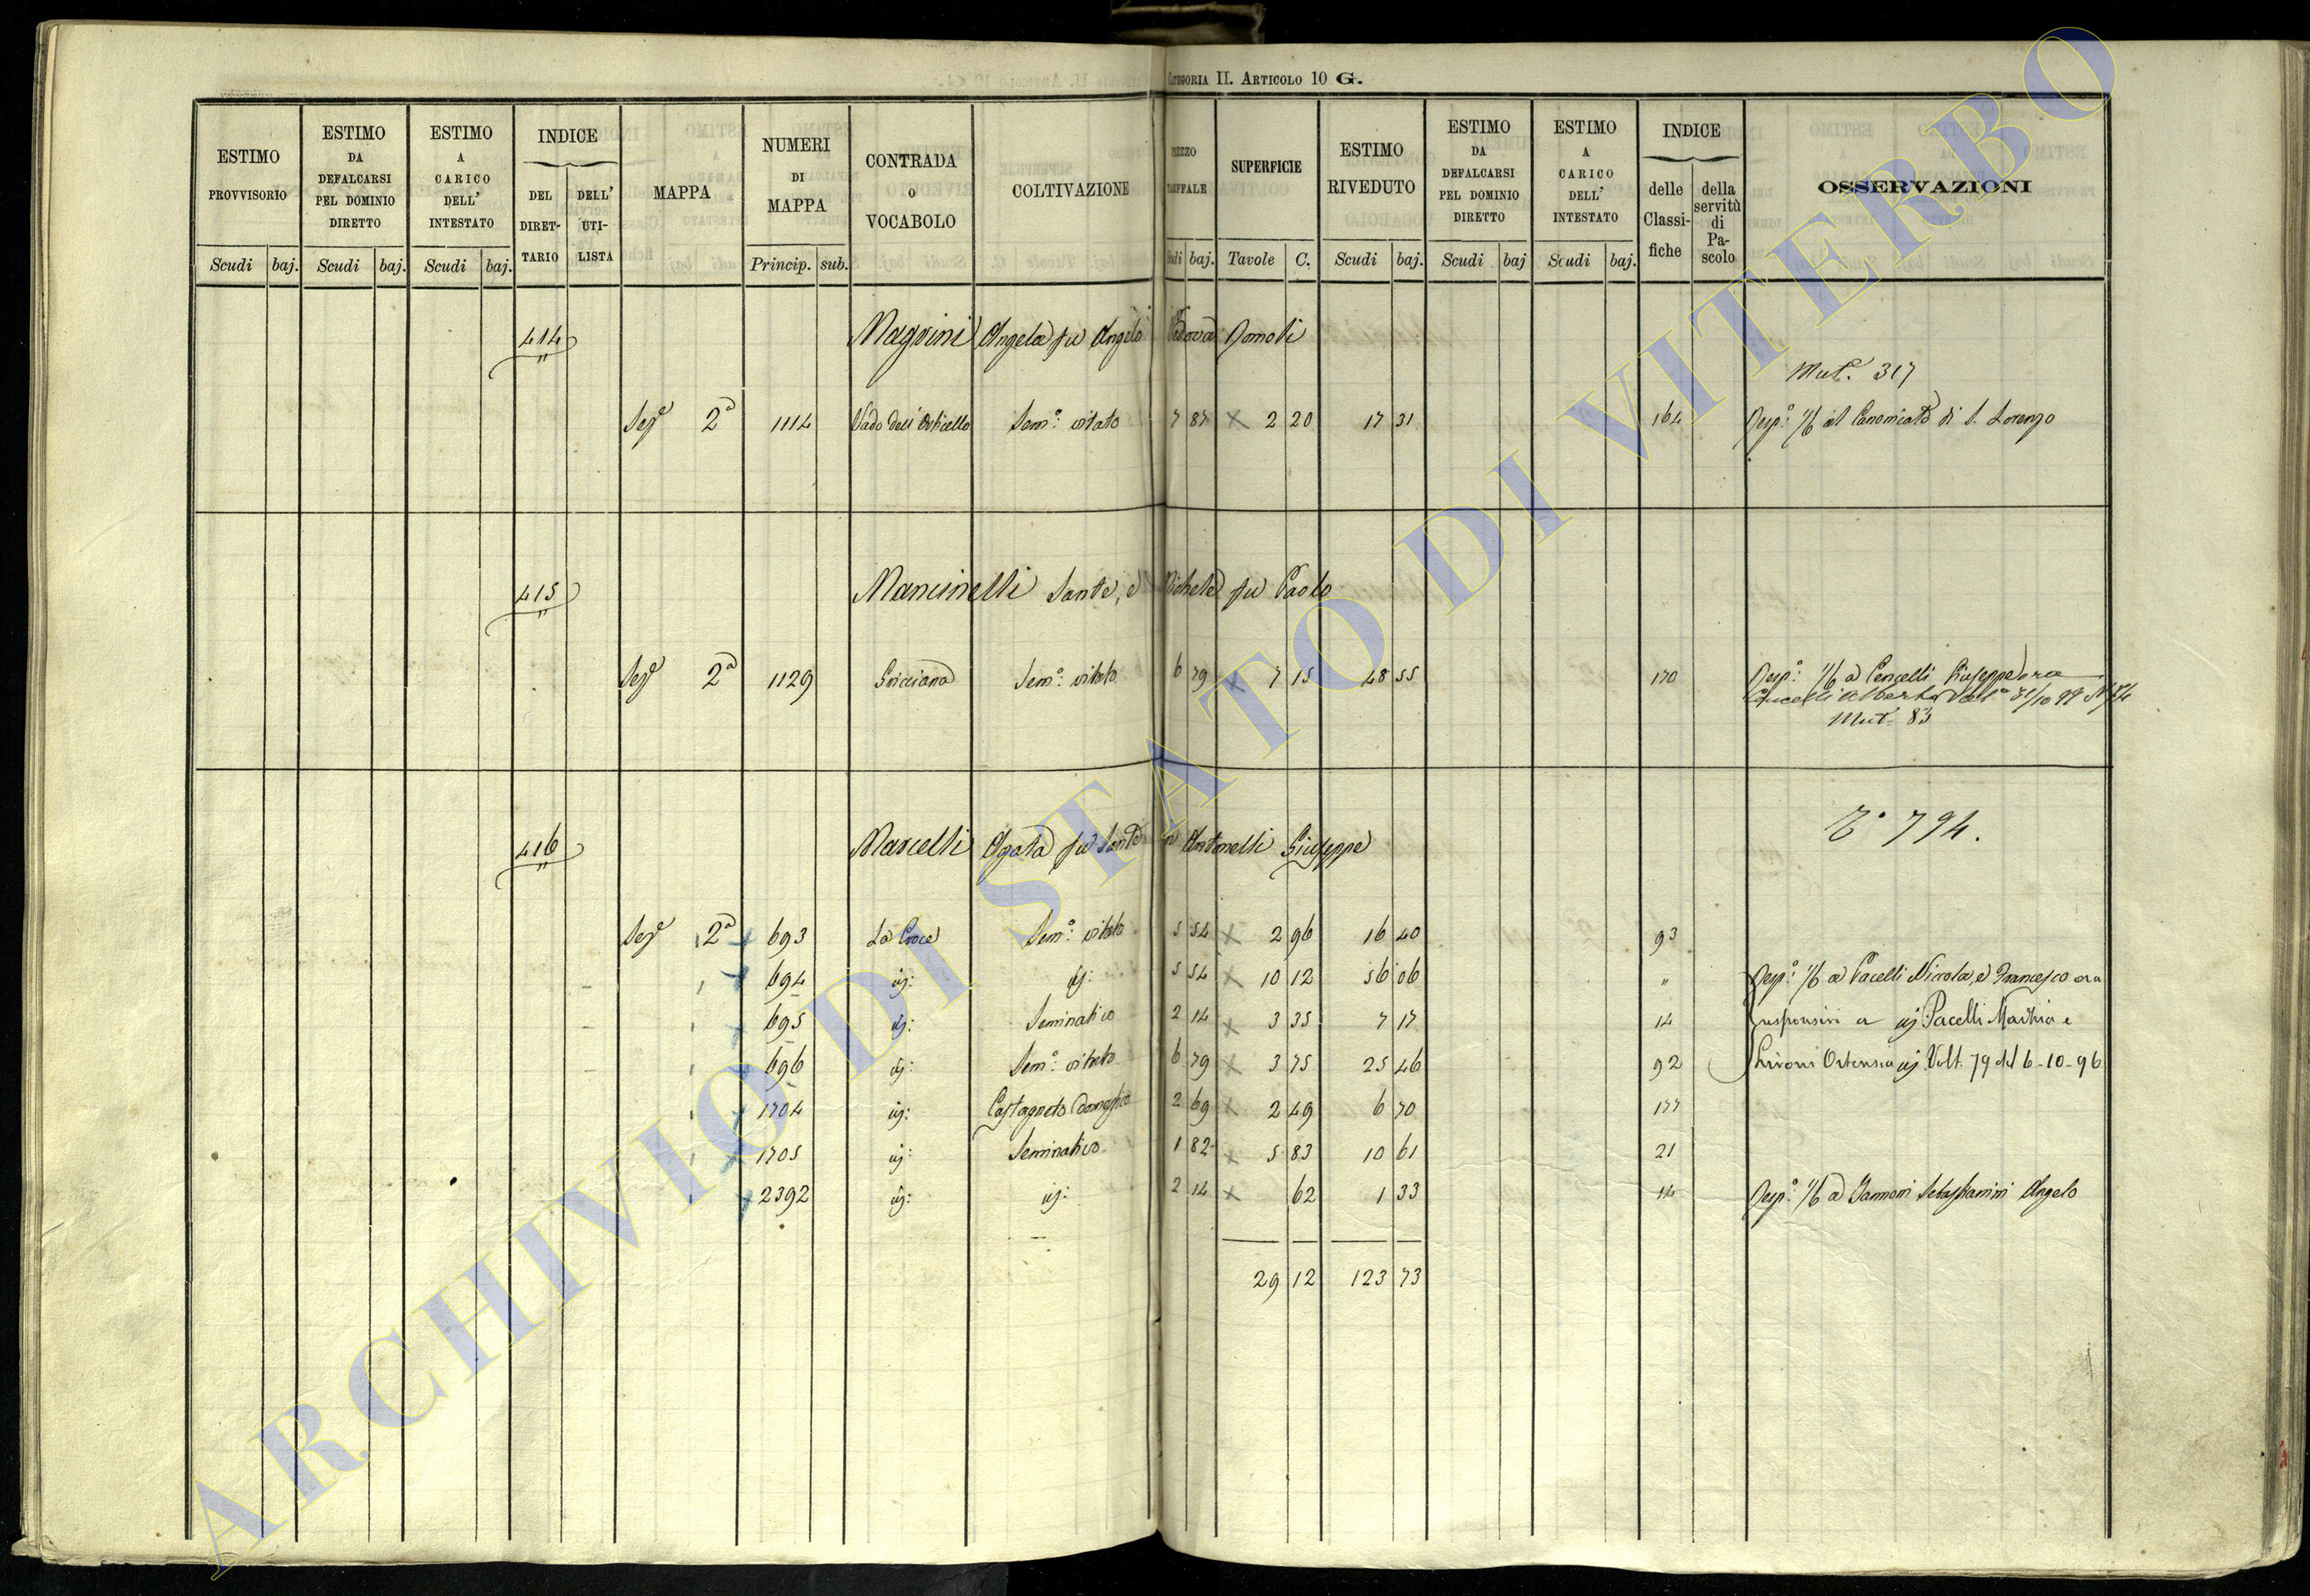 CATEGORIA II. ARTICOLO 10 G.
ESTIMO PROVVISORIO
ESTIMO DA DEFALCARSI PEL DOMINIO DIRETTO
ESTIMO A CARICO DELL' INTESTATO
INDICE
DEL DIRETTARIO
DELL' UTILISTA
MAPPA
NUMERI DI MAPPA
CONTRADA O VOCABOLO
COLTIVAZIONE
PREZZO TARIFFALE
SUPERFICIE
ESTIMO RIVEDUTO
ESTIMO DA DEFALCARSI PEL DOMINIO DIRETTO
ESTIMO A CARICO DELL' INTESTATO
INDICE
delle Classifiche
della servitù di Pascolo
OSSERVAZIONI
Scudi baj. Scudi baj. Scudi baj. Princip. sub. Scudi baj. Tavole C. Scudi baj. Scudi baj Scudi baj.
414 Magrini Angela fu Angelo Vedova
Mut. 317
Sez.e 2a 1114 Vado dell' Orticello Sem.o vitato 7 87 2 20 17 31 164 Resp.o 1/6 al Canonicato di S. Lorenzo
415 Mancinelli Sante, e Michele fu Paolo
Sez.e 2a 1129 Sem.o vitato 6 79 7 15 48 55 170 Resp.o 1/6 a Cencelli Giuseppe ora
Cencelli Alberto
Mut. 83
To 794.
416 Marcelli Agata fu Sante in Antonelli Giuseppe
Sez.e 2a 693 La Croce Sem.o vitato 5 54 2 96 16 40 93
694 id: id: 5 54 10 12 56 06 " Resp.o 1/6 a Pacelli Nicola, e Francesco ora
695 id: Seminativo 2 14 3 35 7 17 14 responsivi a Pacelli Mattia e
696 id: Sem.o vitato 6 79 3 75 25 46 92 Ortensia Volt. 79 del 6-10-96
1704 id: Castagneto domestico 2 69 2 49 6 70 177
1705 id: Seminativo 1 82 5 83 10 61 21
2392 id: id: 2 14 62 1 33 14 Resp.o 1/6 a Sebastianini Angelo
29 12 123 73
ARCHIVIO DI STATO DI VITERBO